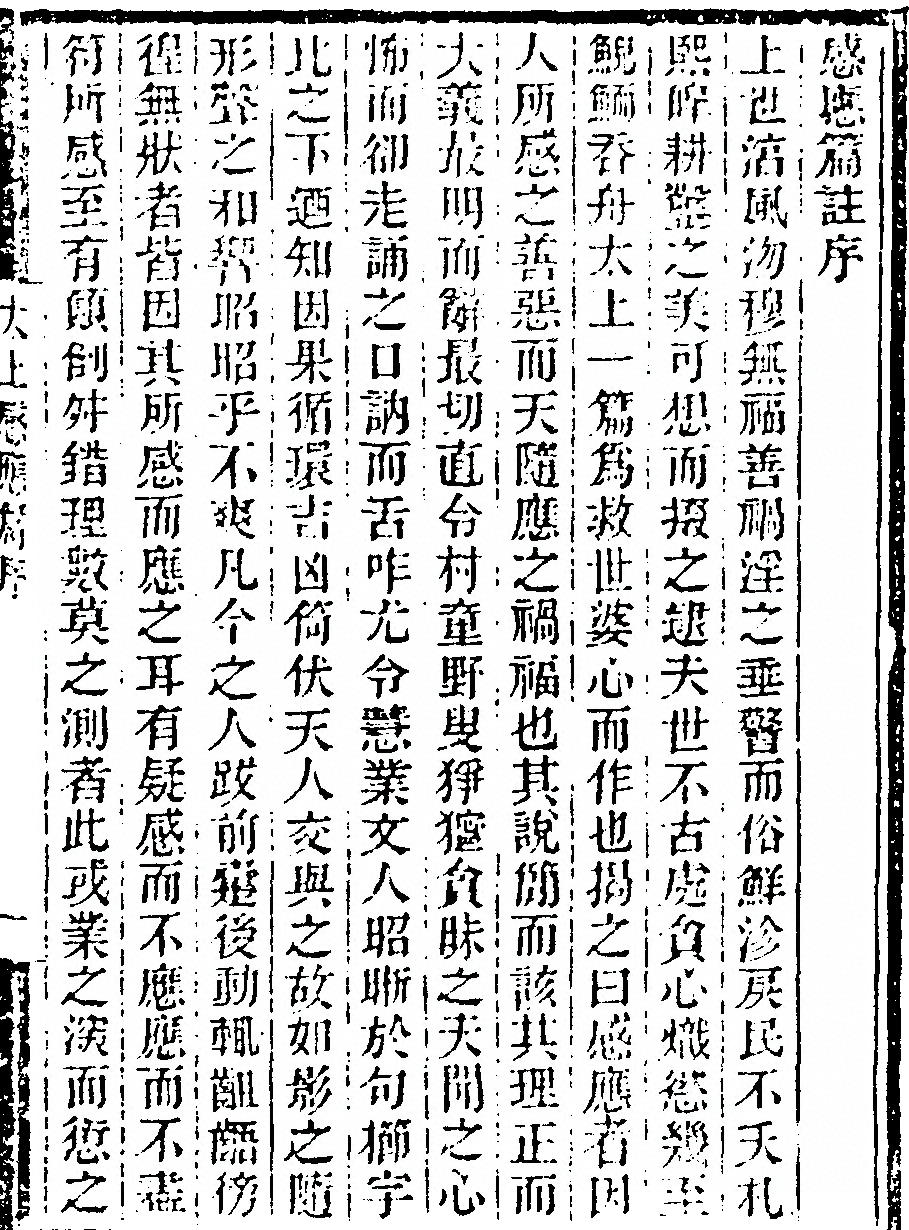 感應篇註序
上世湻風沕穆無福善禍淫之垂警而俗鮮沴戾民不夭札
熙皥耕鑿之美可想而掇之逮夫世不古處負心熾慾幾至
鯢鰌吞舟太上一篇爲救世婆心而作也揭之曰感應者因
人所感之善惡而天隨應之禍福也其說簡而該其理正而
大義最明而辭最切直令村童野叟猙獰負昧之夫聞之心
怖而卻走誦之口訥而舌咋尤令慧業文人昭晣於句櫛字
比之下迺知因果循環吉凶倚伏天人交與之故如影之隨
形聲之和響昭昭乎不爽凡今之人跋前疐後動輒齟齬徬
徨無狀者皆因其所感而應之耳有疑感而不應應而不盡
符所感至有顛倒舛錯理數莫之測者此或業之深而愆之
太上感應篇序
一